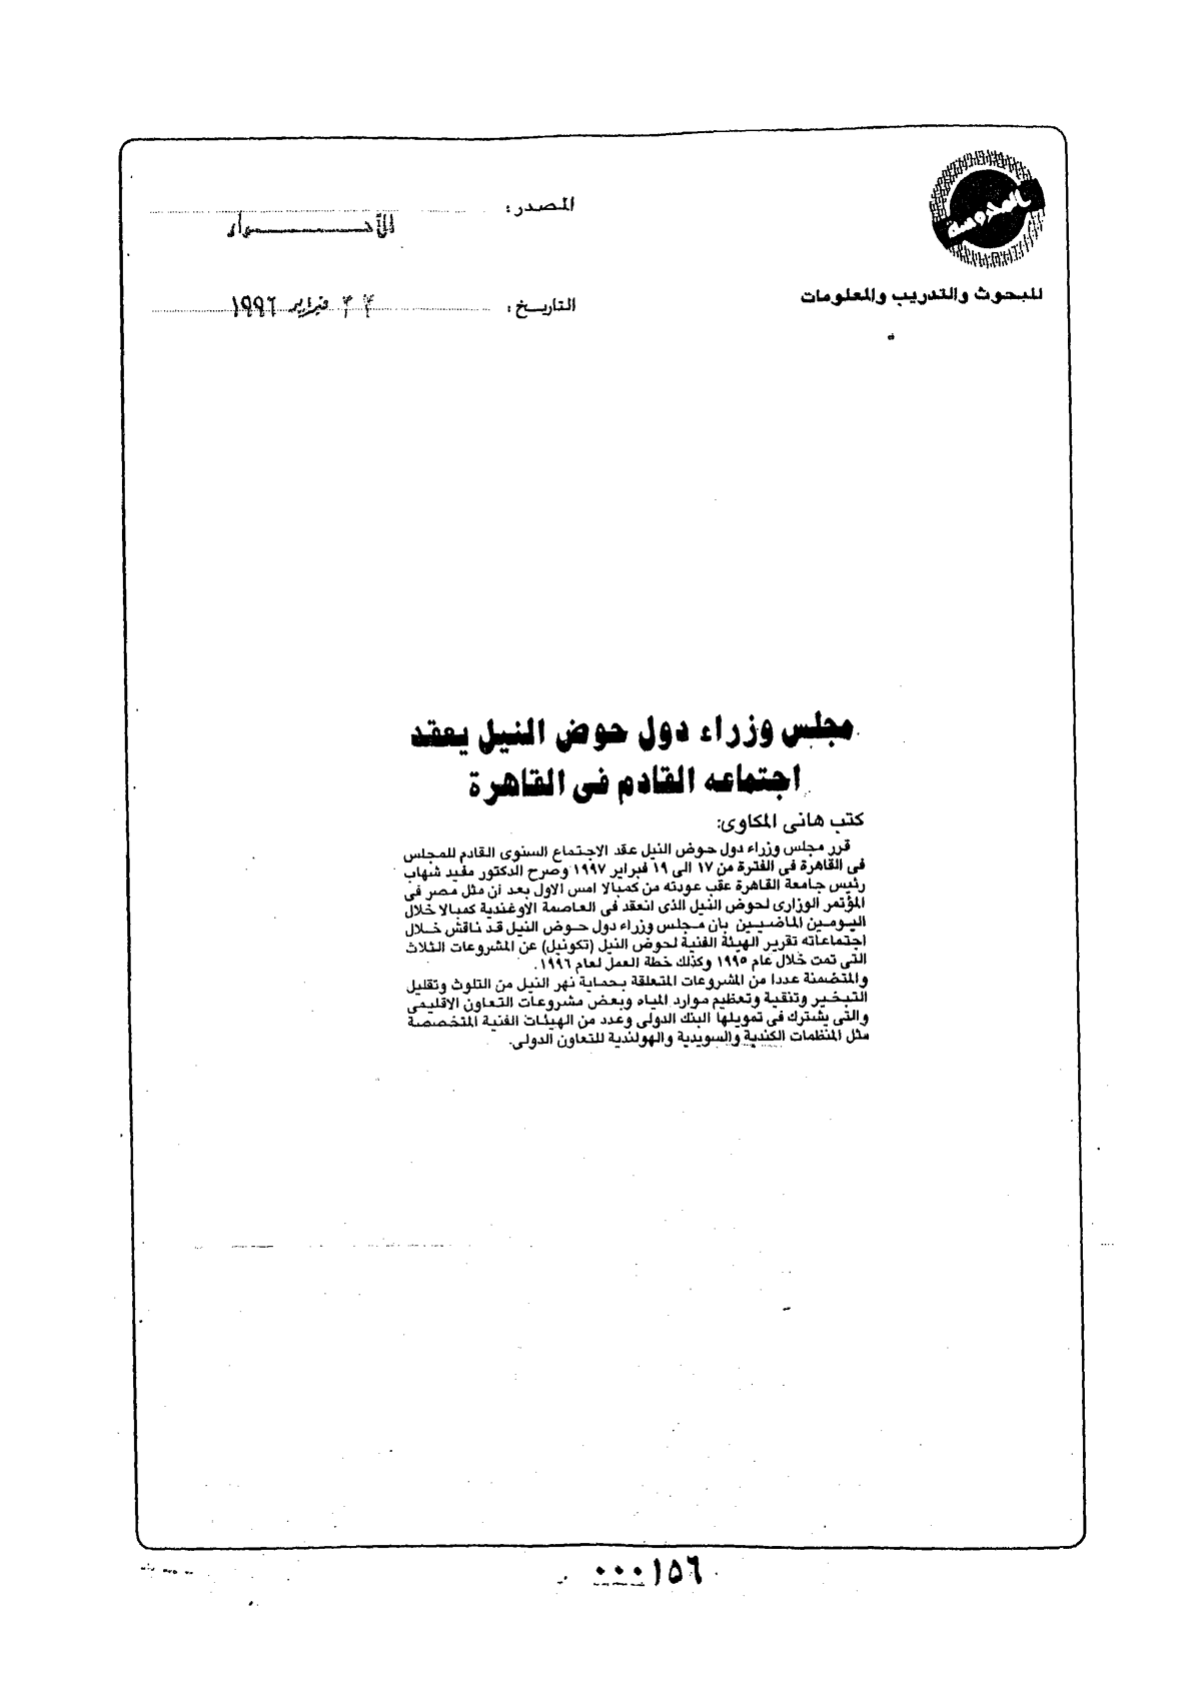 المحروسة
للبحوث والتدريب والمعلومات
المصدر:
التاريخ: فبراير ١٩٩٦
مجلس وزراء دول حوض النيل يعقد
اجتماعه القادم فى القاهرة
كتب هانى المكاوى:
قرر مجلس وزراء دول حوض النيل عقد الاجتماع السنوى القادم للمجلس
فى القاهرة فى الفترة من ١٧ الى ١٩ فبراير ١٩٩٧ وصرح الدكتور مفيد شهاب
رئيس جامعة القاهرة عقب عودته من كمبالا امس الاول بعد أن مثل مصر فى
المؤتمر الوزارى لحوض النيل الذى انعقد فى العاصمة الاوغندية كمبالا خلال
اليومين الماضيين بان مجلس وزراء دول حوض النيل قد ناقش خلال
اجتماعاته تقرير الهيئة الفنية لحوض النيل (تكونيل) عن المشروعات الثلاث
التى تمت خلال عام ١٩٩٥ وكذلك خطة العمل لعام ١٩٩٦.
والمتضمنة عددا من المشروعات المتعلقة بحماية نهر النيل من التلوث وتقليل
التبخير وتنقية وتعظيم موارد المياه وبعض مشروعات التعاون الاقليمى
والتى يشترك فى تمويلها البنك الدولى وعدد من الهيئات الفنية المتخصصة
مثل المنظمات الكندية والسويدية والهولندية للتعاون الدولى.
٠٠٠١٥٦